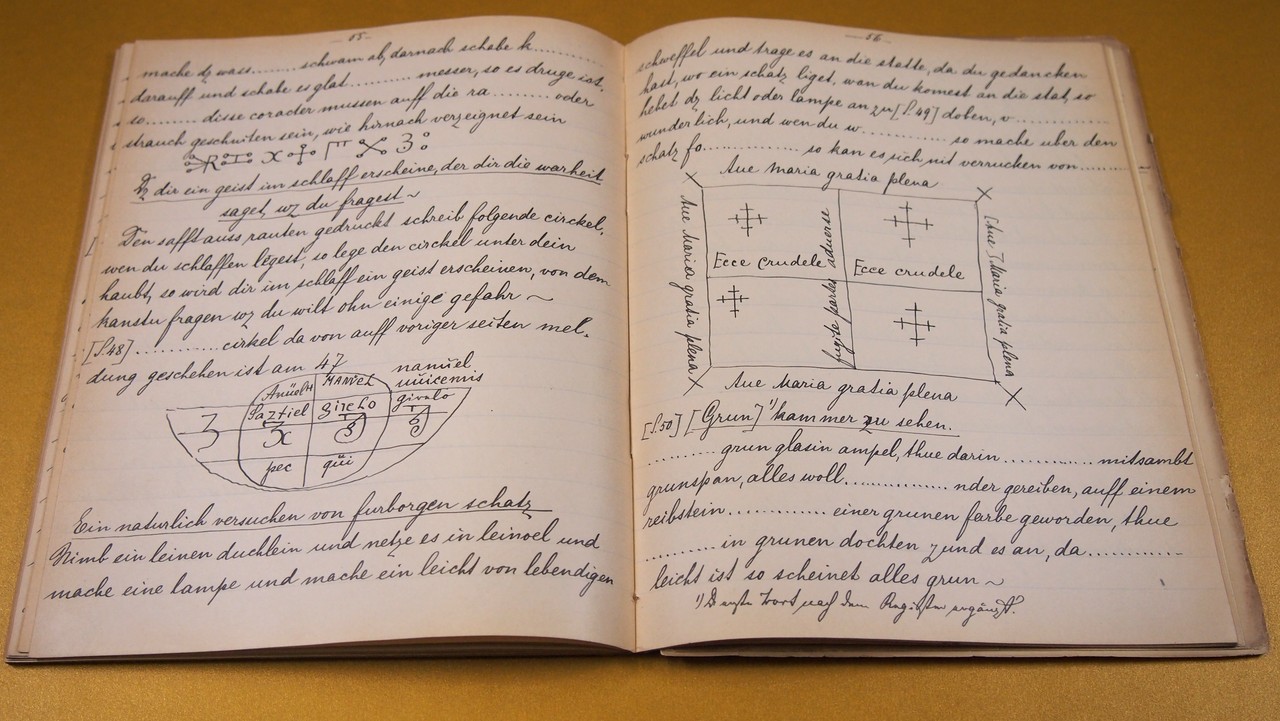 55
mache dz wass........ schwam ab, darnach schabe k..........
darauff und schabe es glat.......... messer, so es druge ist,
so......... disse coracter mussen auff die ra......... oder
strauch geschniten sein, wie hirnach verzeignet sein
Dz dir ein geist im schlaff erscheine, der dir die warheit
saget, wz du fragest ~
Den safft auss rauten gedruckt schreib folgende circkel,
wen du schlaffen legest, so lege den circkel unter dein
haubt, so wird dir im schlaff ein geist erscheinen, von dem
kanstu fragen wz du wilt ohn einige gefahr ~
[S.48] ............ cirkel da von auff voriger seiten mel,
dung geschehen ist am 47
Anüel Manüel nanüel
müicennis
Saztiel Sircho givalo
3 3x 3 3
pec qüi
Ein naturlich versuchen von furborgen schatz
Nimb ein leinen duchlein und netze es in leinoel und
mache eine lampe und mache ein leicht von lebendigen
56
schweffel und trage es an die statte, da du gedancken
hast, wo ein schatz liget, wan du komest an die stat, so
hebet dz licht oder lampe an zu [S.49] doben, v..............
wunderlich, und wen du w............. so mache uber den
schatz fo.............. so kan es sich nit verrucken von..........
Aue maria gratia plena
Aue Maria gratia plena
Ecce crudele
fugite partes adversae
Ecce crudele
[Aue] Maria gratia plena
Aue Maria gratia plena
[S.50] [Grun] 1) kammer zu sehen.
.......... grun glasin ampel, thue darin .............. mitsambt
grunspan, alles woll............... nder gereiben, auff einem
reibstein.............. einer grunen farbe geworden, thue
.......... in grunen dochten zund es an, da..............
leicht ist so scheinet alles grun ~
1) Das erste Wort nach dem Register ergänzt.